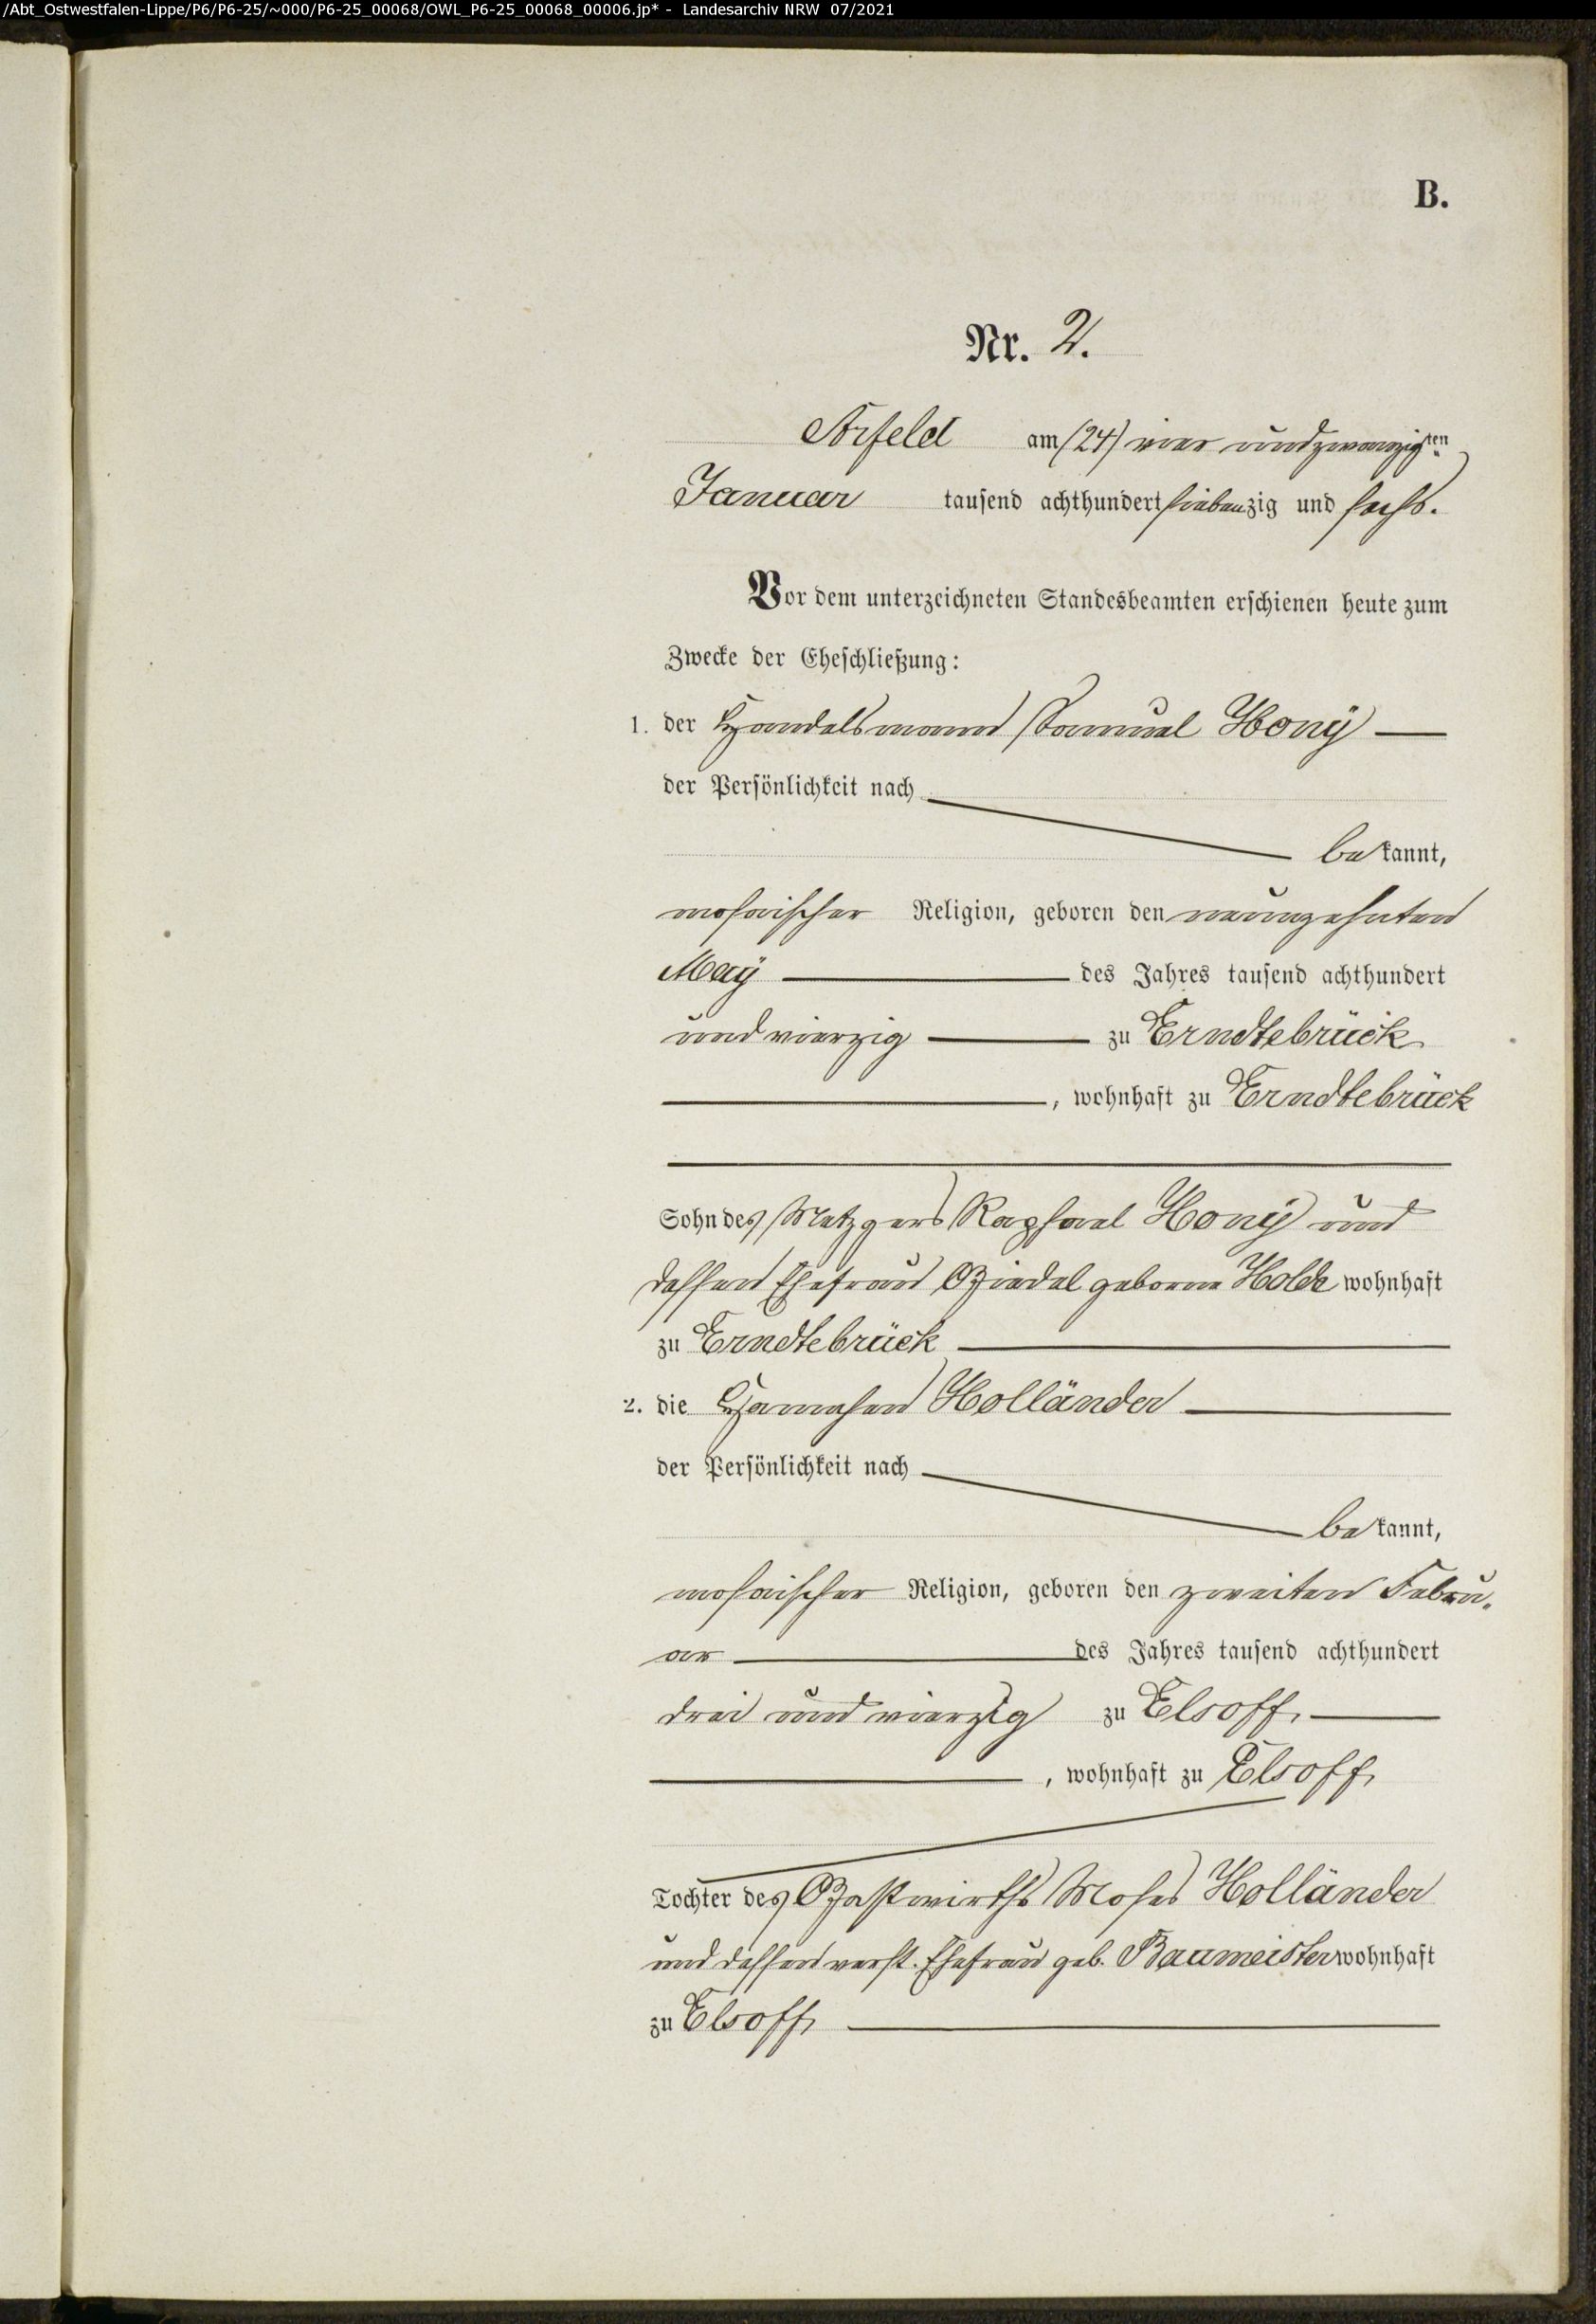 /Abt_Ostwestfalen-Lippe/P6/P6-25/~000/P6-25_00068/OWL_P6-25_00068_00006.jp* - Landesarchiv NRW 07/2021
B.
Nr. 2.
Arfeld am (24) vier und zwanzigten
Januar tausend achthundert siebenzig und sechs.
Vor dem unterzeichneten Standesbeamten erschienen heute zum
Zwecke der Eheschließung:
1. der Handelsmann Samuel Hony
der Persönlichkeit nach
bekannt,
mosaischer Religion, geboren den neunzehnten
May des Jahres tausend achthundert
und vierzig zu Erndtebrück
, wohnhaft zu Erndtebrück
Sohn des Metzgers Raphael Hony und
dessen Ehefrau Giedel geborne Holde wohnhaft
zu Erndtebrück
2. die Hannchen Holländer
der Persönlichkeit nach
bekannt,
mosaischer Religion, geboren den zweiten Febru-
ar des Jahres tausend achthundert
drei und vierzig zu Elsoff,
, wohnhaft zu Elsoff,
Tochter des Gastwirths Moses Holländer
und dessen verst. Ehefrau geb. Baumeister wohnhaft
zu Elsoff,